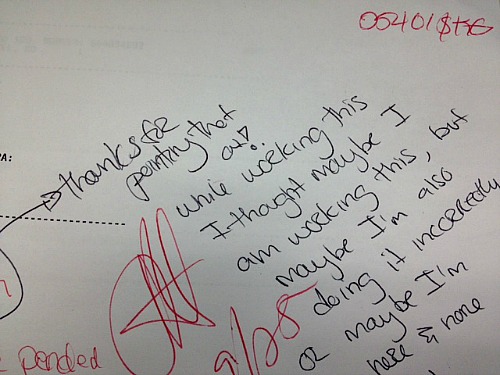 PA:
thanks for
pointing that
out!
while working this
I thought maybe I
am working this, but
maybe I'm also
doing it incorrectly
or maybe I'm
here & none
pended